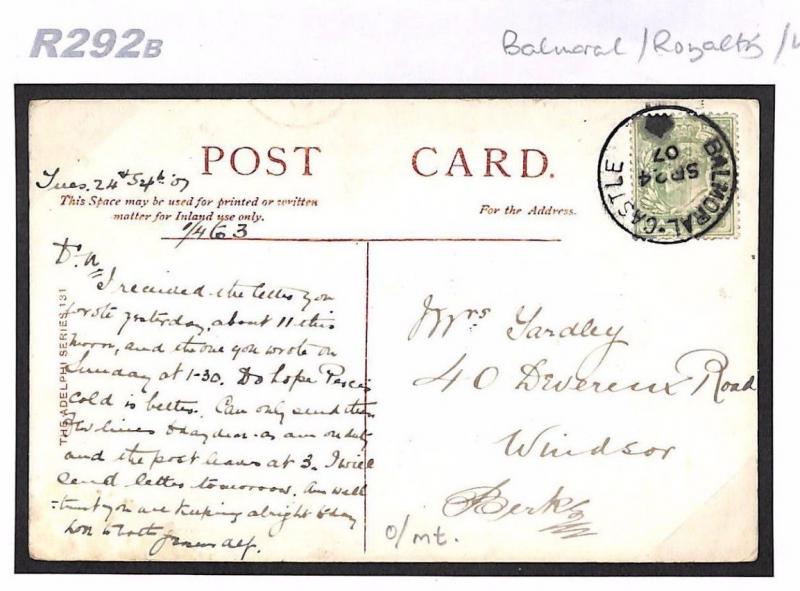 R292B
Balmoral / Royalty /
POST CARD.
Tues. 24th Sept. 07
This Space may be used for printed or written
matter for Inland use only.
For the Address.
BALMORAL-CASTLE
SP 24
07
1/463
THE ADELPHI SERIES 131
I received the letter you
wrote yesterday, about 11 this
noon, and the one you wrote on
Sunday at 1-30. Do hope
cold is better. Can only send
few lines today dear as am on duty
and the post leaves at 3. I will
send letter tomorrow. Am well
trust you are keeping alright today
Mrs Yardley
40 Devereux Road
Windsor
Berks
o/mt.